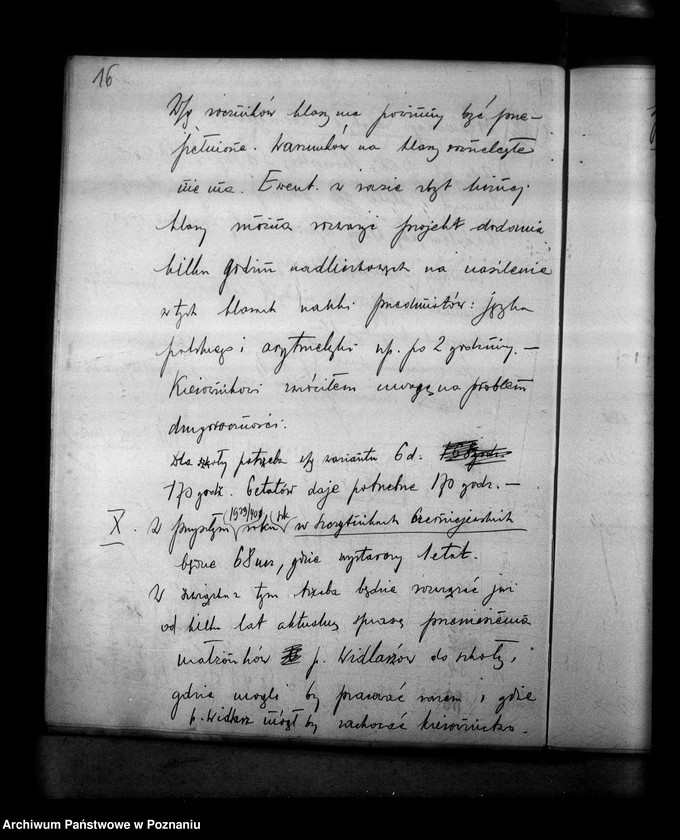 16
W/g roczników klasy nie powinny być prze-
pełnione. Warunków na klasy równoległe
nie ma. Ewent. w razie zbyt licznej
klasy można rozważyć projekt dodania
kilku godzin nadliczbowych na nasilenie
w tych klasach nauki przedmiotów: języka
polskiego i arytmetyki np. po 2 godziny. —
Kierownikowi zwróciłem uwagę na problem
drugoroczności.
Dla szkoły potrzeba w/g wariantu 6 d.
170 godz. 6 etatów daje potrzebne 170 godz. —
X. W przyszłym (1939/40) roku w Szczytnikach Czerniejewskich
będzie 68 ucz, gdzie wystarczy 1 etat.
W związku z tym trzeba będzie rozwiązać już
od kilku lat aktualną sprawę przeniesienia
małżonków p. Widlarzów do szkoły,
gdzie mogli by pracować razem i gdzie
p. Widlarz mógł by zachować kierownictwo.
Archiwum Państwowe w Poznaniu